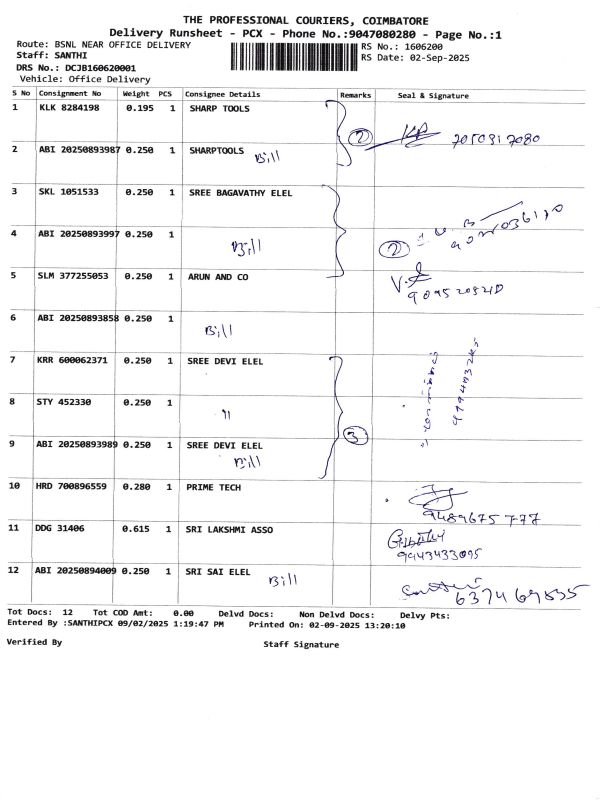 THE PROFESSIONAL COURIERS, COIMBATORE
Delivery Runsheet - PCX - Phone No.:9047080280 - Page No.:1
Route: BSNL NEAR OFFICE DELIVERY
RS No.: 1606200
Staff: SANTHI
RS Date: 02-Sep-2025
DRS No.: DCJB160620001
Vehicle: Office Delivery
S No Consignment No Weight PCS Consignee Details Remarks Seal & Signature
1 KLK 8284198 0.195 1 SHARP TOOLS
2
2 ABI 20250893987 0.250 1 SHARPTOOLS Bill
3 SKL 1051533 0.250 1 SREE BAGAVATHY ELEL
4 ABI 20250893997 0.250 1 Bill 2
5 SLM 377255053 0.250 1 ARUN AND CO
6 ABI 20250893858 0.250 1 Bill
7 KRR 600062371 0.250 1 SREE DEVI ELEL
8 STY 452330 0.250 1 "
3
9 ABI 20250893989 0.250 1 SREE DEVI ELEL Bill
10 HRD 700896559 0.280 1 PRIME TECH
9489675777
11 DDG 31406 0.615 1 SRI LAKSHMI ASSO
9943433095
12 ABI 20250894009 0.250 1 SRI SAI ELEL Bill
Tot Docs: 12 Tot COD Amt: 0.00 Delvd Docs: Non Delvd Docs: Delvy Pts:
Entered By :SANTHIPCX 09/02/2025 1:19:47 PM Printed On: 02-09-2025 13:20:10
Verified By Staff Signature